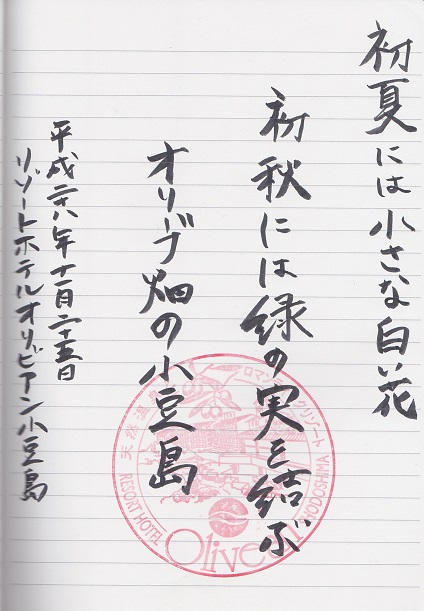 初夏には小さな白い花
初秋には緑の実を結ぶ
オリーブ畑の小豆島
平成二十八年十一月二十五日
リゾートホテルオリビアン小豆島
天然温泉
リゾート
RESORT HOTEL